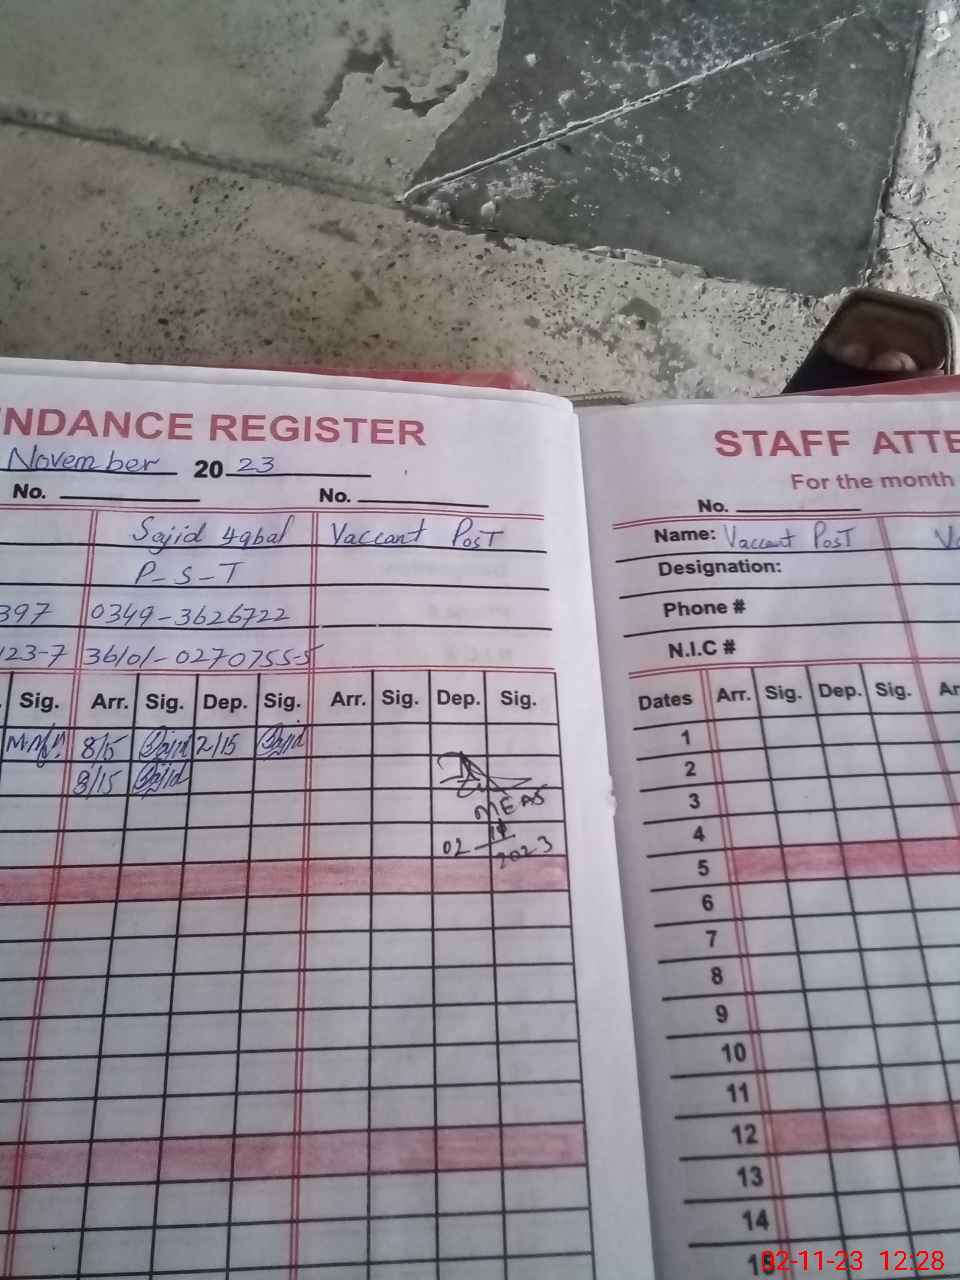 NDANCE REGISTER
November 2023
No. No.
Sajid Iqbal Vaccant PosT
P-S-T
397 0349-3626722
123-7 36101-0270755-5
Sig. Arr. Sig. Dep. Sig. Arr. Sig. Dep. Sig.
8/5 Sajid 2/15 Sajid
8/15 Sajid
MEAS
02-11-2023
STAFF ATTE
For the month
No.
Name: Vaccant PosT
Designation:
Phone #
N.I.C #
Dates Arr. Sig. Dep. Sig. Ar
1
2
3
4
5
6
7
8
9
10
11
12
13
14
15
02-11-23 12:28